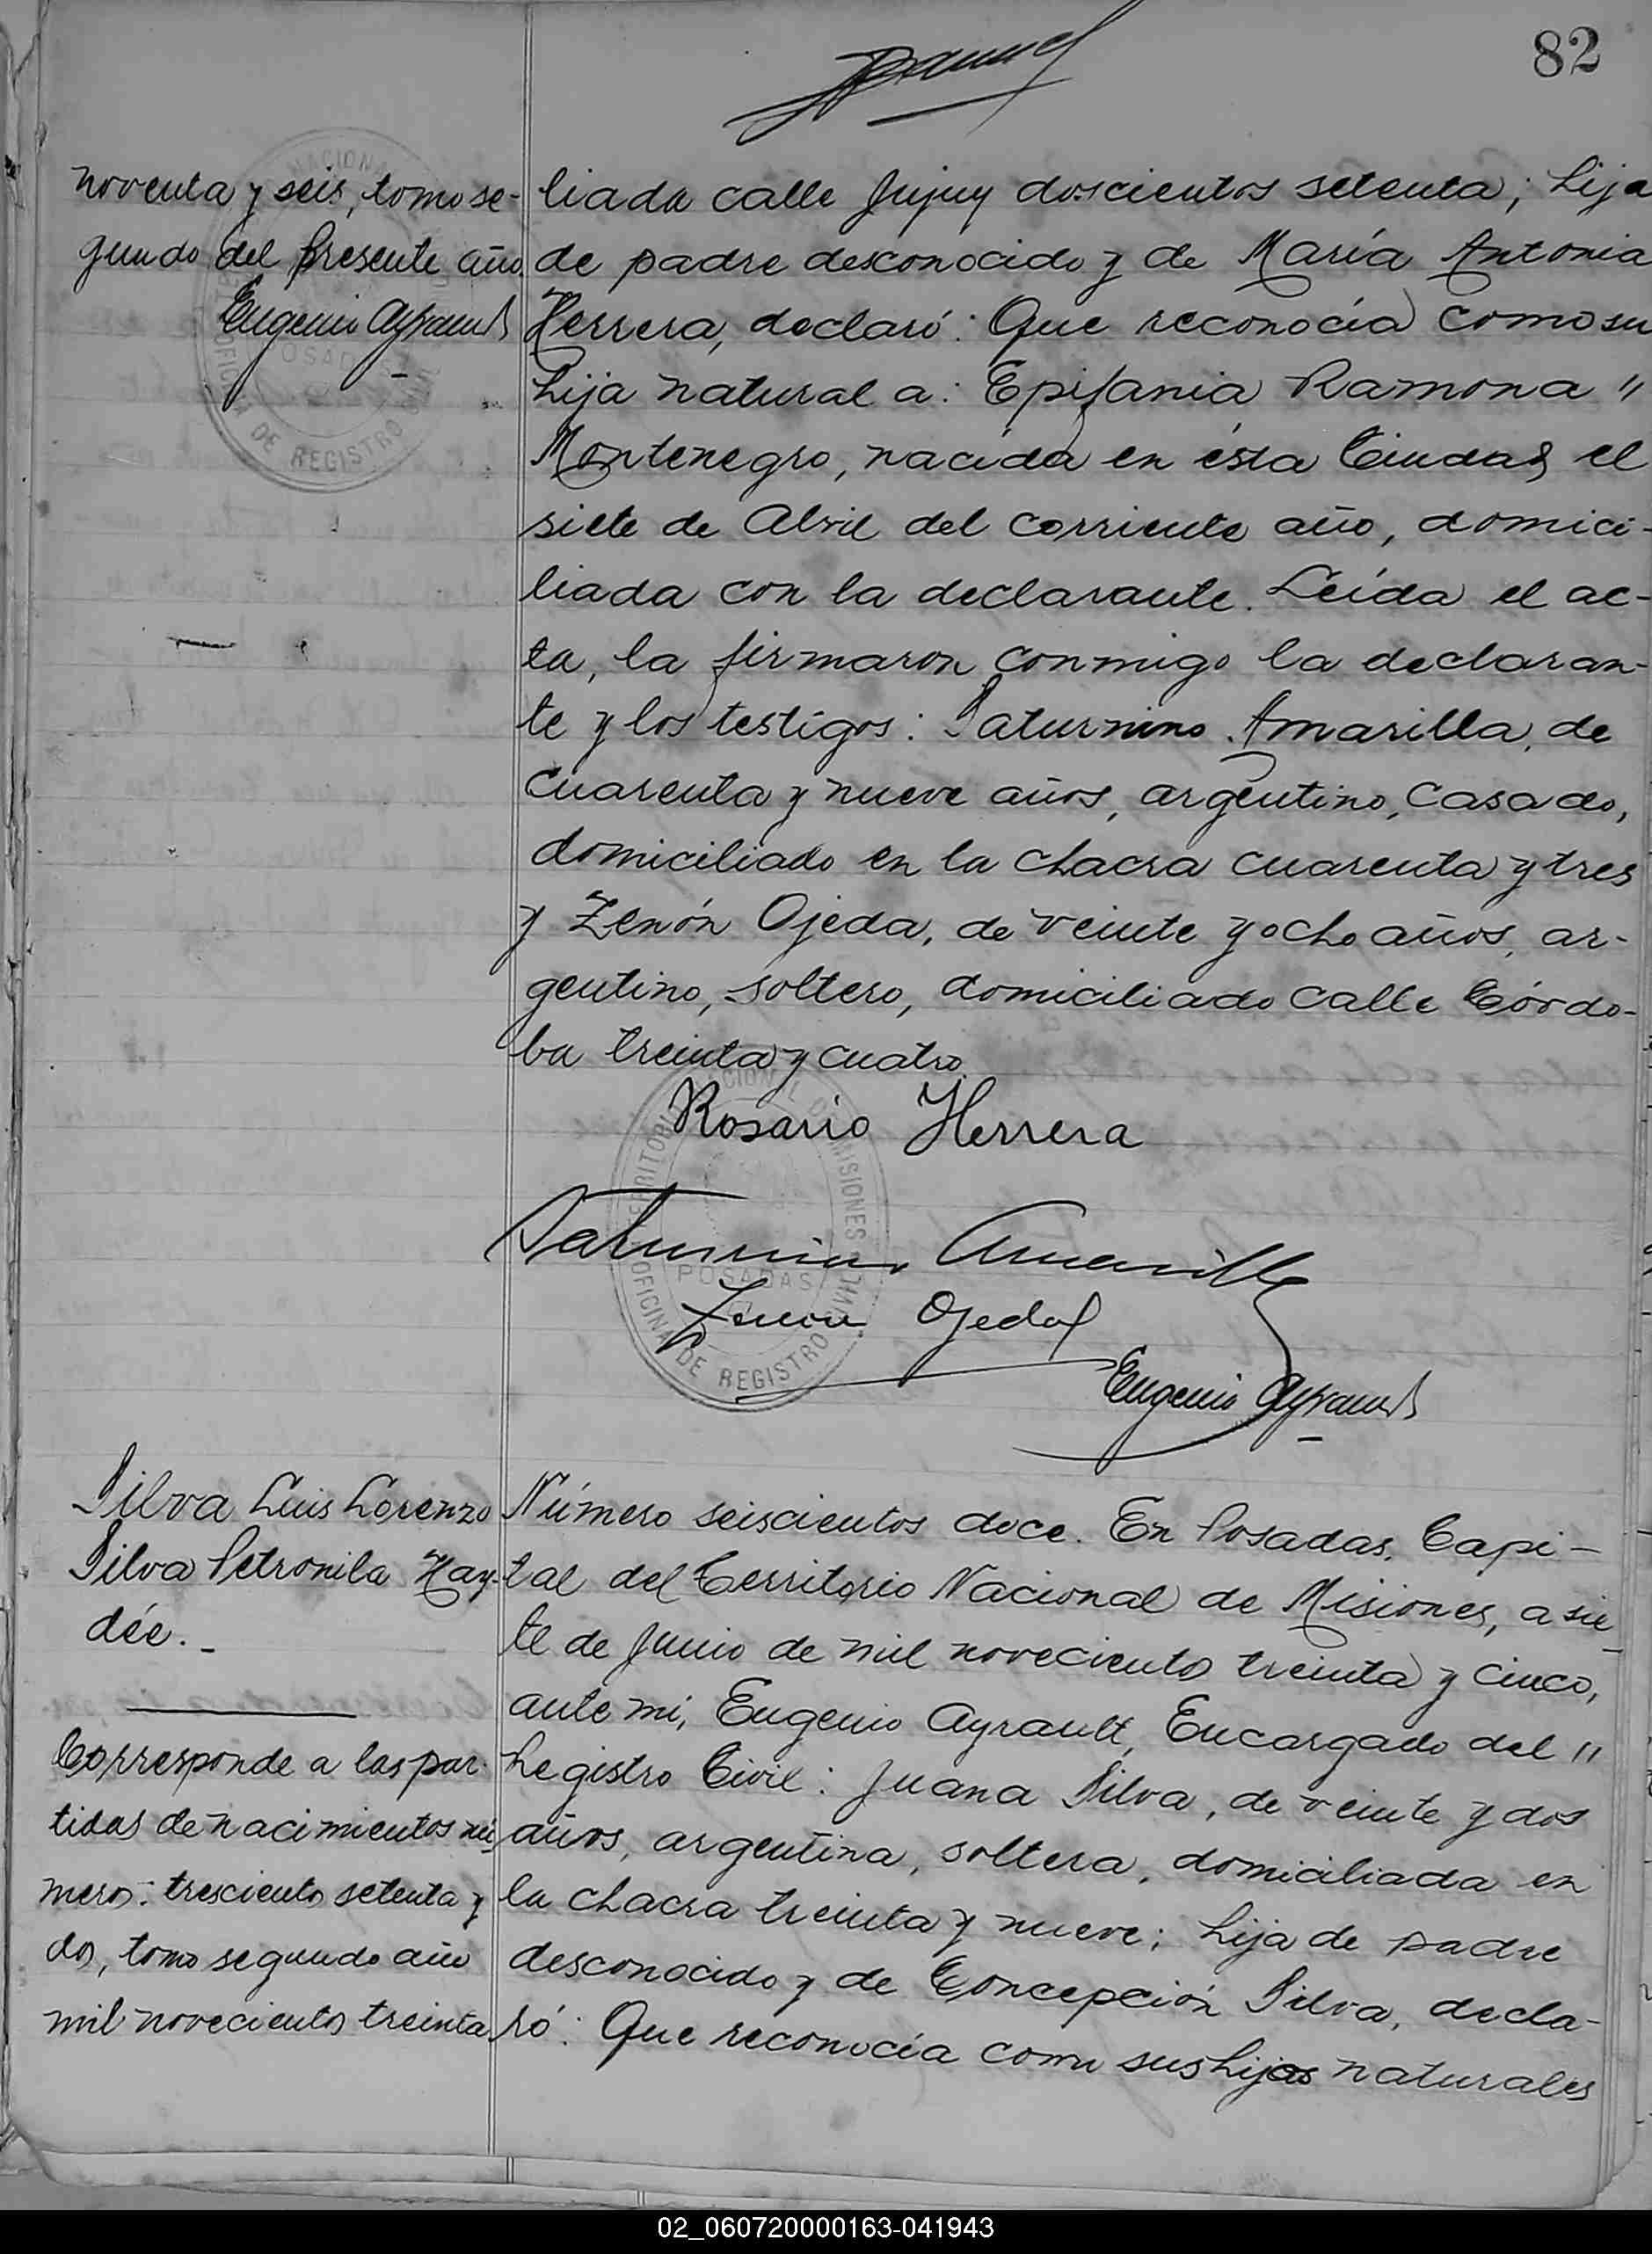 82
noventa y seis, tomo se-
gundo del presente año
Eugenio Ayrault
liada calle Jujuy doscientos setenta; hija
de padre desconocido y de María Antonia
Herrera, declaró: Que reconocía como su
hija natural a: Epifania Ramona "
Montenegro, nacida en ésta Ciudad el
siete de Abril del corriente año, domici-
liada con la declarante. Leída el ac-
ta, la firmaron conmigo la declaran-
te y los testigos: Saturnino Amarilla, de
cuarenta y nueve años, argentino, casado,
domiciliado en la chacra cuarenta y tres
y Zenón Ojeda, de veinte y ocho años, ar-
gentino, soltero, domiciliado calle Córdo-
ba treinta y cuatro.
Rosario Herrera
Saturnino Amarilla
Zenon Ojeda
Eugenio Ayrault
POSADAS
OFICINA DE REGISTRO CIVIL
Silva Luis Lorenzo
Silva Petronila Hay-
dée.-
Corresponde a las par-
tidas de nacimientos nú-
meros: trescientos setenta y
dos, tomo segundo año
mil novecientos treinta
Número seiscientos doce. En Posadas, Capi-
tal del Territorio Nacional de Misiones, a sie-
te de Junio de mil novecientos treinta y cinco,
ante mi, Eugenio Ayrault, Encargado del "
Registro Civil: Juana Silva, de veinte y dos
años, argentina, soltera, domiciliada en
la chacra treinta y nueve; hija de padre
desconocido y de Concepción Silva, decla-
ró: Que reconocía como sus hijos naturales
02_060720000163-041943